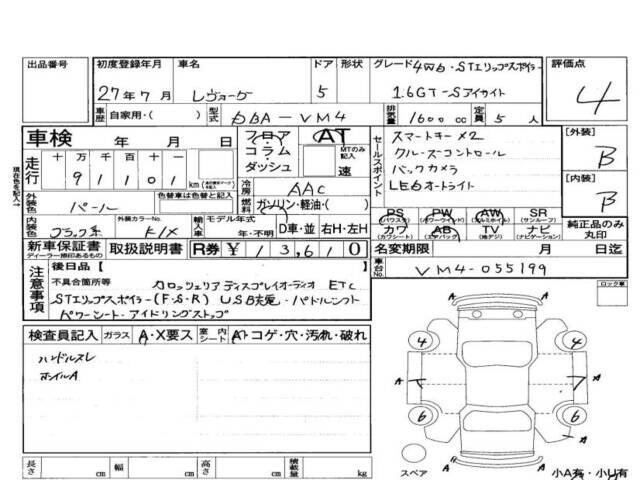 出品番号 初度登録年月 車名 ドア 形状 グレード 4WD・STエリップスポイラー 評価点
27年7月 レヴォーグ 5 1.6GT-Sアイサイト 4
車歴 自家用・( ) 型式 DBA-VM4 排気量 1600cc 定員 5人
車検 年 月 日 フロア コラム ダッシュ AT MTのみ記入 速
走行 十万千百十一 91101 km
冷房 AAC
セールスポイント スマートキー×2
クルーズコントロール
バックカメラ
LEDオートライト
[外装] B
[内装] B
現在色を記入→
外装色 パール 色替車は色替と記入
燃料 ガソリン・軽油・( )
内装色 ブラック系 外装カラーNo. K1X
輸入車 モデル年式 年・不明 D車・並 右H・左H
PS (パワステ) PW (パワーウインド) AW (アルミホイル) SR (サンルーフ)
カワ (カワシート) AB (エアバッグ) TV (地デジ) ナビ (ナビゲーション)
純正品のみ丸印
新車保証書 ディーラー捺印あるもの 取扱説明書 R券 ¥13,610
名変期限 月 日
車台No. VM4-055199
注意事項 後日品[ ]
不具合箇所等 カロッツェリアディスプレイオーディオ ETC
STエリップスポイラー(F・S・R) USB充電・パドルシフト
パワーシート・アイドリングストップ
ロック車
検査員記入 ガラス A・X要ス 室内シート A・コゲ・穴・汚れ・破れ
ハンドルスレ
ホイルA
4 4
A A
A A
6 6
A
スペア
長さ cm 幅 cm 高さ cm 積載量 kg
小A有・小U有